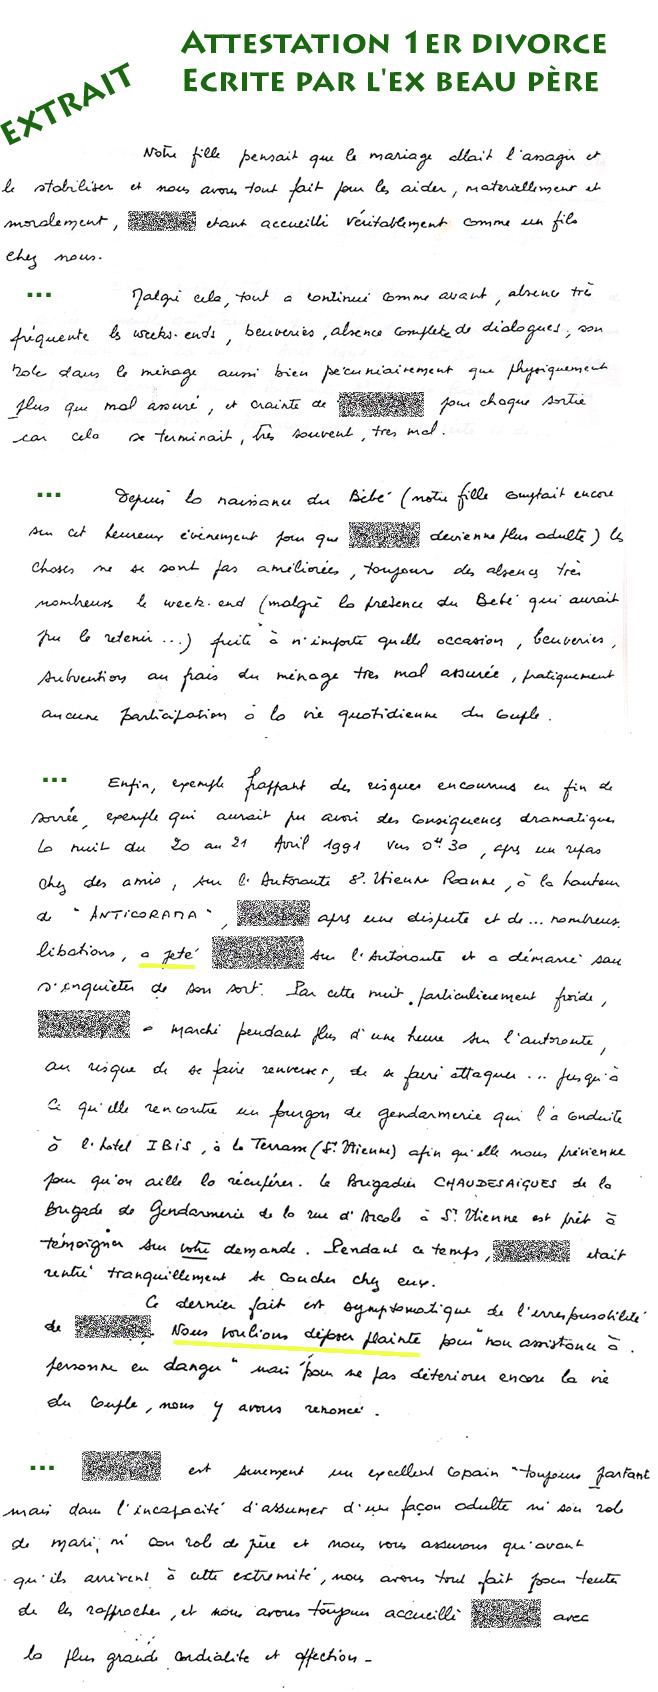 ATTESTATION 1ER DIVORCE
ECRITE PAR L'EX BEAU PÈRE
EXTRAIT
Notre fille pensait que le mariage allait l'assagir et
le stabiliser et nous avons tout fait pour les aider, matériellement et
moralement, etant accueilli véritablement comme un fils
chez nous.
... Malgré cela, tout a continué comme avant, absence très
fréquente les weeks-ends, beuveries, absence complete de dialogues, son
role dans le ménage aussi bien pécuniairement que physiquement
plus que mal assuré, et crainte de pour chaque sortie
car cela se terminait, très souvent, tres mal.
... Depuis la naissance du Bébé (notre fille comptait encore
sur cet heureux événement pour que devienne plus adulte) les
choses ne se sont pas améliorées, toujours des absences très
nombreuses le week-end (malgré la présence du Bébé qui aurait
pu le retenir...) fuite à n'importe quelle occasion, beuveries,
subvention au frais du ménage tres mal assurée, pratiquement
aucune participation à la vie quotidienne du couple.
... Enfin, exemple frappant des risques encourus en fin de
soirée, exemple qui aurait pu avoir des conséquences dramatiques
la nuit du 20 au 21 Avril 1991 vers 0H30, après un repas
chez des amis, sur l'Autoroute St Etienne Roanne, à la hauteur
de "ANTICORAMA", après une dispute et de... nombreuses
libations, a jeté sur l'Autoroute et a démarré sans
s'inquiéter de son sort. Par cette nuit particulièrement froide,
a marché pendant plus d'une heure sur l'autoroute,
au risque de se faire renverser, de se faire attaquer... jusqu'à
ce qu'elle rencontre un fourgon de gendarmerie qui l'a conduite
à l'hotel IBIS, à la Terrasse (St Etienne) afin qu'elle nous prévienne
pour qu'on aille la récupérer. Le Brigadier CHAUDESAIGUES de la
Brigade de Gendarmerie de la rue d'Arcole à St Etienne est prêt à
témoigner sur votre demande. Pendant ce temps, etait
rentré tranquillement se coucher chez eux.
Ce dernier fait est symptomatique de l'irresponsabilité
de . Nous voulions déposer plainte pour "non assistance à
personne en danger" mais pour ne pas déteriorer encore la vie
du couple, nous y avons renoncé.
... est surement un excellent copain "toujours partant"
mais dans l'incapacité d'assumer d'une façon adulte ni son role
de mari, ni son role de père et nous vous assurons qu'avant
qu'ils arrivent à cette extremité, nous avons tout fait pour tenter
de les rapprocher, et nous avons toujours accueilli avec
la plus grande cordialité et affection -